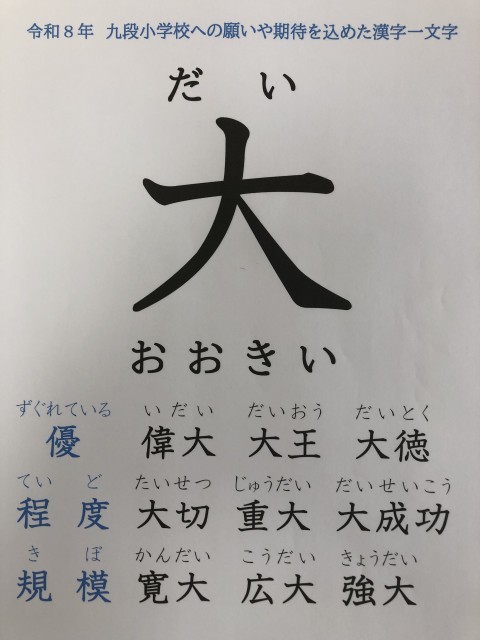 令和８年 九段小学校への願いや期待を込めた漢字一文字
だい
大
おおきい
ずぐれている いだい だいおう だいとく
優 偉大 大王 大徳
ていど たいせつ じゅうだい だいせいこう
程度 大切 重大 大成功
きぼ かんだい こうだい きょうだい
規模 寛大 広大 強大